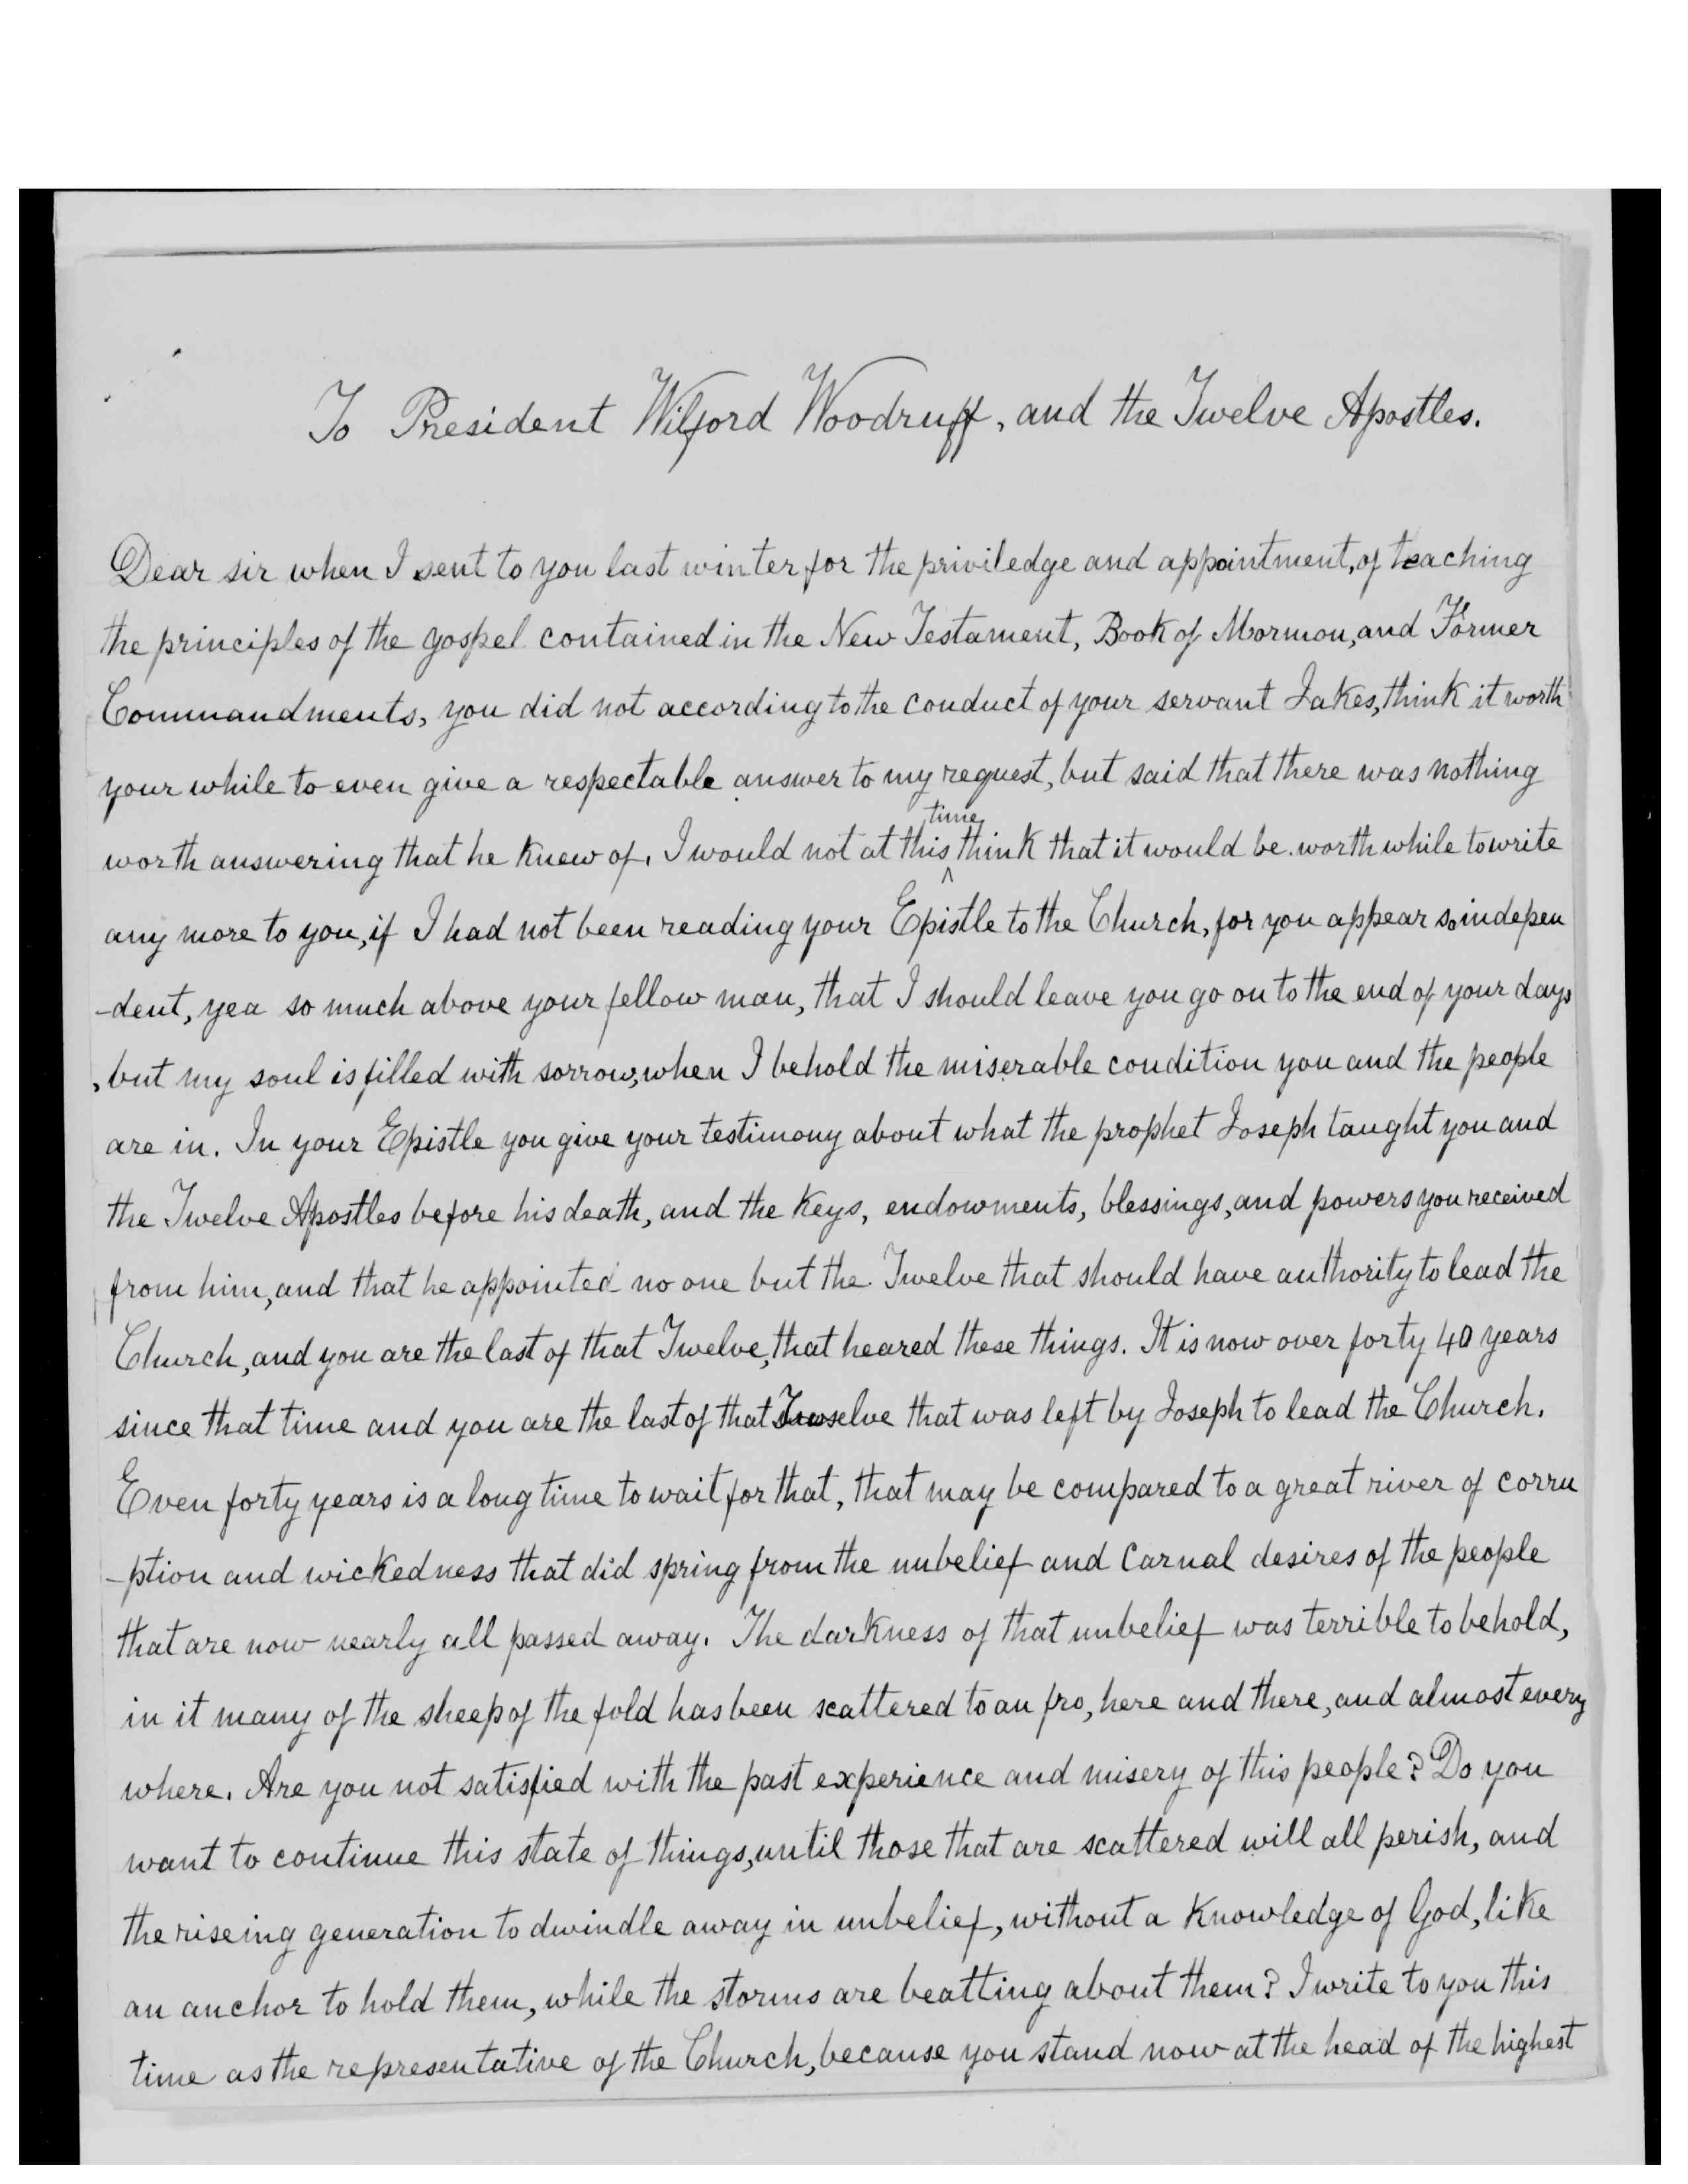 To President Wilford Woodruff, and the Twelve Apostles.
Dear sir when I sent to you last winter for the priviledge and appointment, of teaching
the principles of the gospel contained in the New Testament, Book of Mormon, and Former
Commandments, you did not according to the conduct of your servant Jakes, think it worth
your while to even give a respectable answer to my request, but said that there was nothing
time
worth answering that he knew of. I would not at this ^ think that it would be worth while to write
any more to you, if I had not been reading your Epistle to the Church, for you appear so indepen
-dent, yea so much above your fellow man, that I should leave you go on to the end of your days
, but my soul is filled with sorrow, when I behold the miserable condition you and the people
are in. In your Epistle you give your testimony about what the prophet Joseph taught you and
the Twelve Apostles before his death, and the keys, endowments, blessings, and powers you received
from him, and that he appointed no one but the Twelve that should have authority to lead the
Church, and you are the last of that Twelve, that heared these things. It is now over forty 40 years
since that time and you are the last of that Twelve that was left by Joseph to lead the Church.
Even forty years is a long time to wait for that, that may be compared to a great river of corru
-ption and wickedness that did spring from the unbelief and carnal desires of the people
that are now nearly all passed away. The darkness of that unbelief was terrible to behold,
in it many of the sheep of the fold has been scattered to an fro, here and there, and almost every
where. Are you not satisfied with the past experience and misery of this people? Do you
want to continue this state of things, until those that are scattered will all perish, and
the riseing generation to dwindle away in unbelief, without a knowledge of God, like
an anchor to hold them, while the storms are beatting about them? I write to you this
time as the representative of the Church, because you stand now at the head of the highest